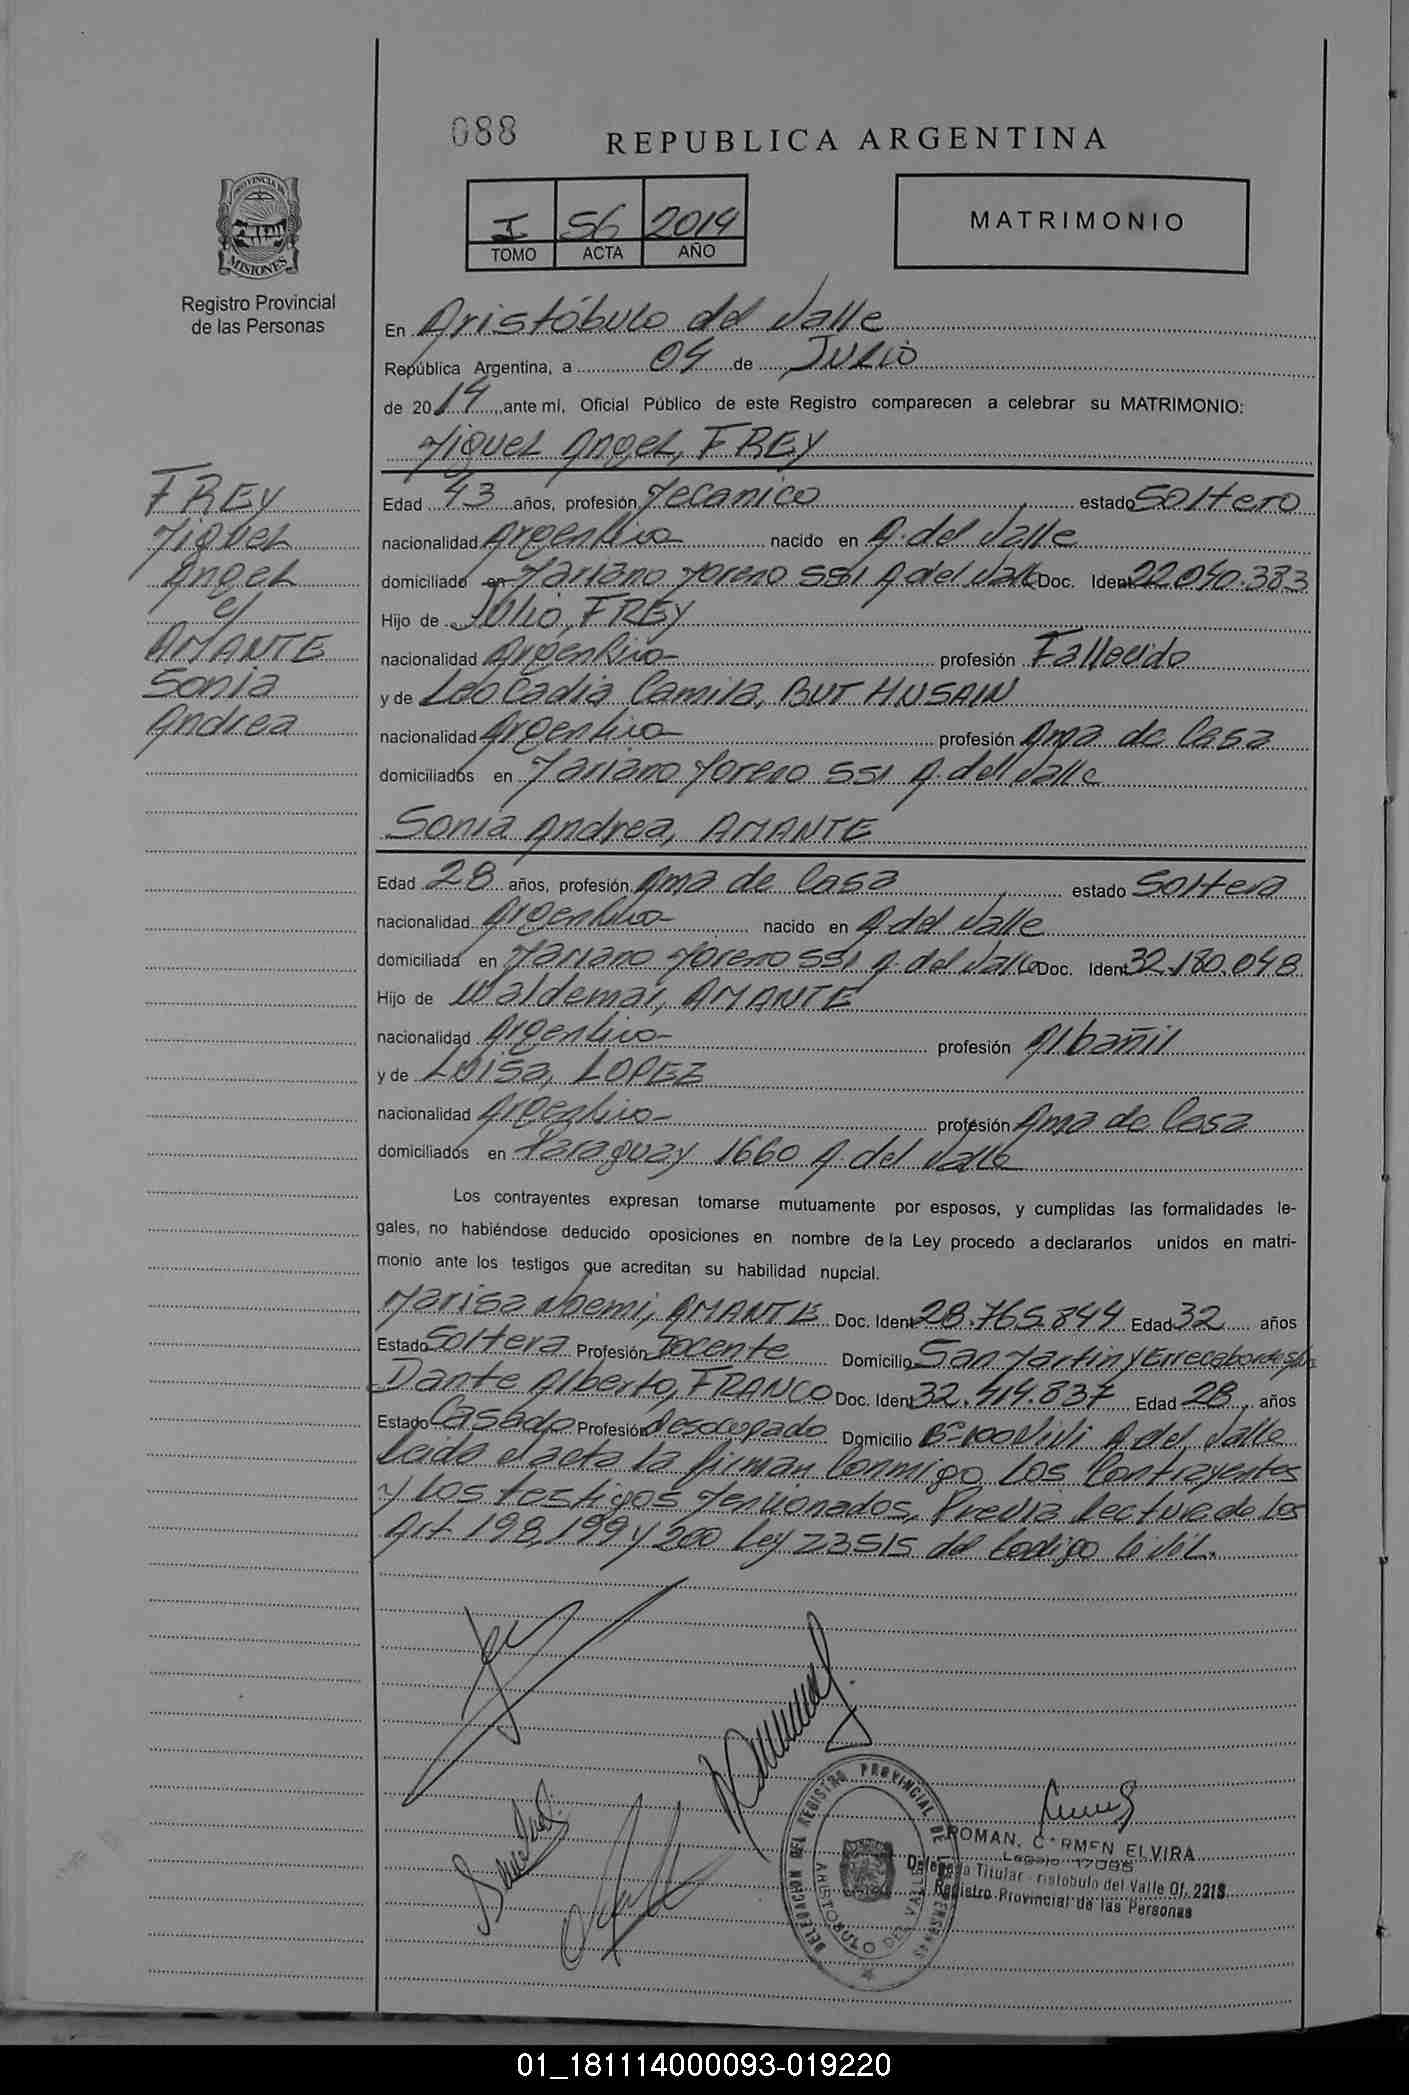 088
REPUBLICA ARGENTINA
I 56 2014
TOMO ACTA AÑO
MATRIMONIO
PROVINCIA DE
MISIONES
Registro Provincial
de las Personas
En Aristóbulo del Valle
República Argentina, a 04 de JULIO
de 2014, ante mí, Oficial Público de este Registro comparecen a celebrar su MATRIMONIO:
Miguel Angel, FREY
FREY
Miguel
Angel
c/
AMANTE
Sonia
Andrea
Edad 43 años, profesión Mecanico estado Soltero
nacionalidad Argentina nacido en A. del Valle
domiciliado en Mariano Moreno 551 A del Valle Doc. Ident 22.040.383
Hijo de Julio, FREY
nacionalidad Argentina profesión Fallecido
y de Leocadia Camila, BUT HUSAIN
nacionalidad Argentina profesión Ama de Casa
domiciliados en Mariano Moreno 551 A. del Valle
Sonia Andrea, AMANTE
Edad 28 años, profesión Ama de Casa estado Soltera
nacionalidad Argentina nacido en A del Valle
domiciliada en Mariano Moreno 551 A. del Valle Doc. Ident 32.180.048
Hijo de Waldemar, AMANTE
nacionalidad Argentina profesión Albañil
y de Luisa, LOPEZ
nacionalidad Argentina profesión Ama de Casa
domiciliados en Paraguay 1660 A. del Valle
Los contrayentes expresan tomarse mutuamente por esposos, y cumplidas las formalidades le-
gales, no habiéndose deducido oposiciones en nombre de la Ley procedo a declararlos unidos en matri-
monio ante los testigos que acreditan su habilidad nupcial.
Marisa Noemi, AMANTE Doc. Ident 28.765.844 Edad 32 años
Estado Soltera Profesión Docente Domicilio San Martin y Errecaborde s/n
Dante Alberto, FRANCO Doc. Ident 32.414.837 Edad 28 años
Estado Casado Profesión Desocupado Domicilio B° 100 Vivi A del Valle
Leida el acta la firman Conmigo los Contrayentes
y Los testigos Mencionados, Previa Lectura de los
Art 198, 199 y 200 Ley 23515 del Codigo Civil.
DELEGACION DEL REGISTRO PROVINCIAL DE LAS PERSONAS
ARISTOBULO DEL VALLE
ROMAN, CARMEN ELVIRA
Legajo 17086
Delegada Titular - ristobulo del Valle Of. 2218
Registro Provincial de las Personas
01_181114000093-019220